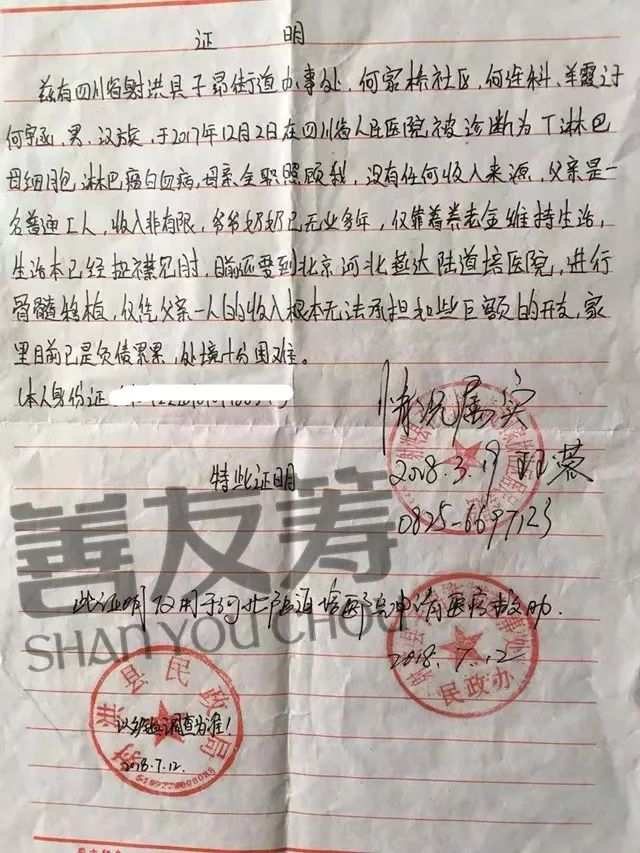 证 明
兹有四川省射洪县子昂街道办事处,何家桥社区,何连科、羊霞之子
何宗函,男、汉族,于2017年12月2日在四川省人民医院被诊断为T淋巴
母细胞,淋巴瘤白血病,母亲全职照顾我,没有任何收入来源,父亲是一
名普通工人,收入非有限,爷爷奶奶已无业多年,仅靠着养老金维持生活,
生活本已经拉襟见肘,目前还要到北京河北燕达陆道培医院,进行
骨髓移植,仅凭父亲一人的收入根本无法承担如些巨额的开支,家
里目前已是负债累累,处境十分困难。
(本人身份证
情况属实
特此证明
2018.3.19
0825-6697123
善友筹
SHAN YOU CHOU
此证明仅用于河北陆道培医院申请医疗救助.
2018.7.12
民政办
射洪县民政局
以乡镇调查为准!
2018.7.12